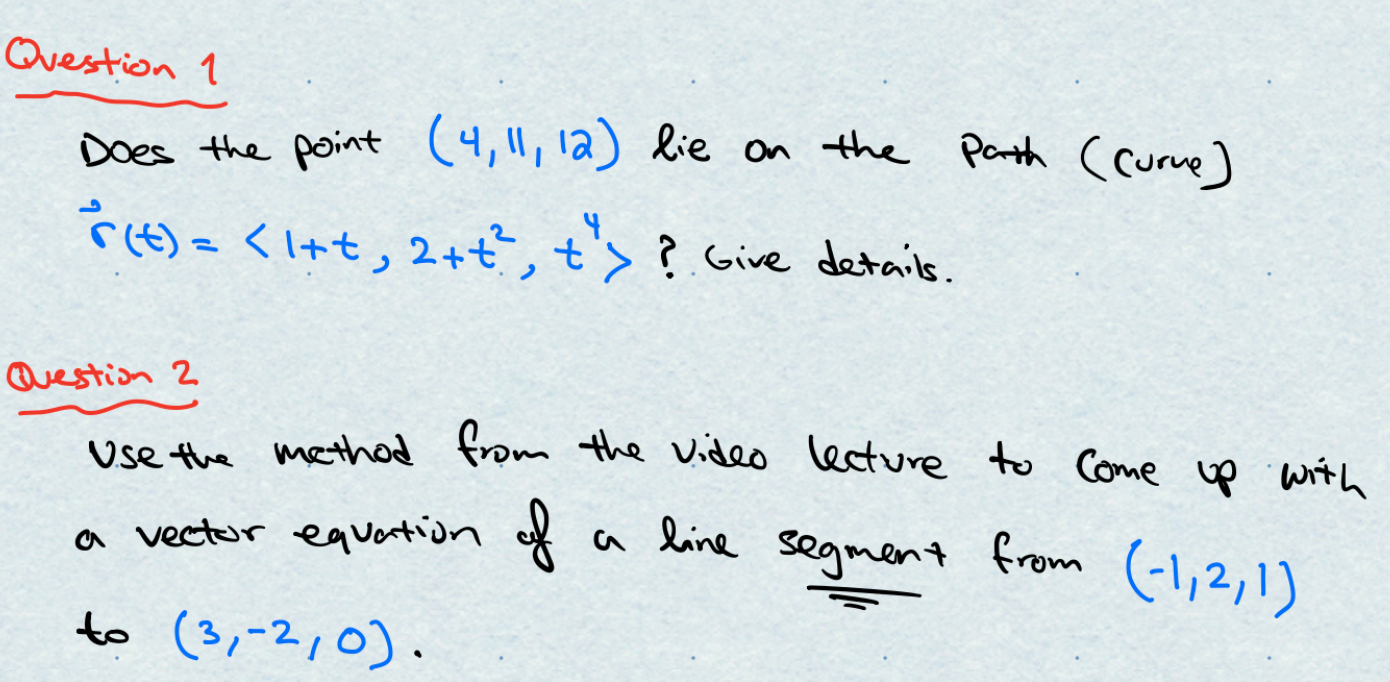 Question 1
Does the point (4, 11, 12) lie on the path (curve)
r⃗(t) = <1+t, 2+t², t⁴> ? Give details.
Question 2
Use the method from the video lecture to come up with
a vector equation of a line segment from (-1, 2, 1)
to (3, -2, 0).